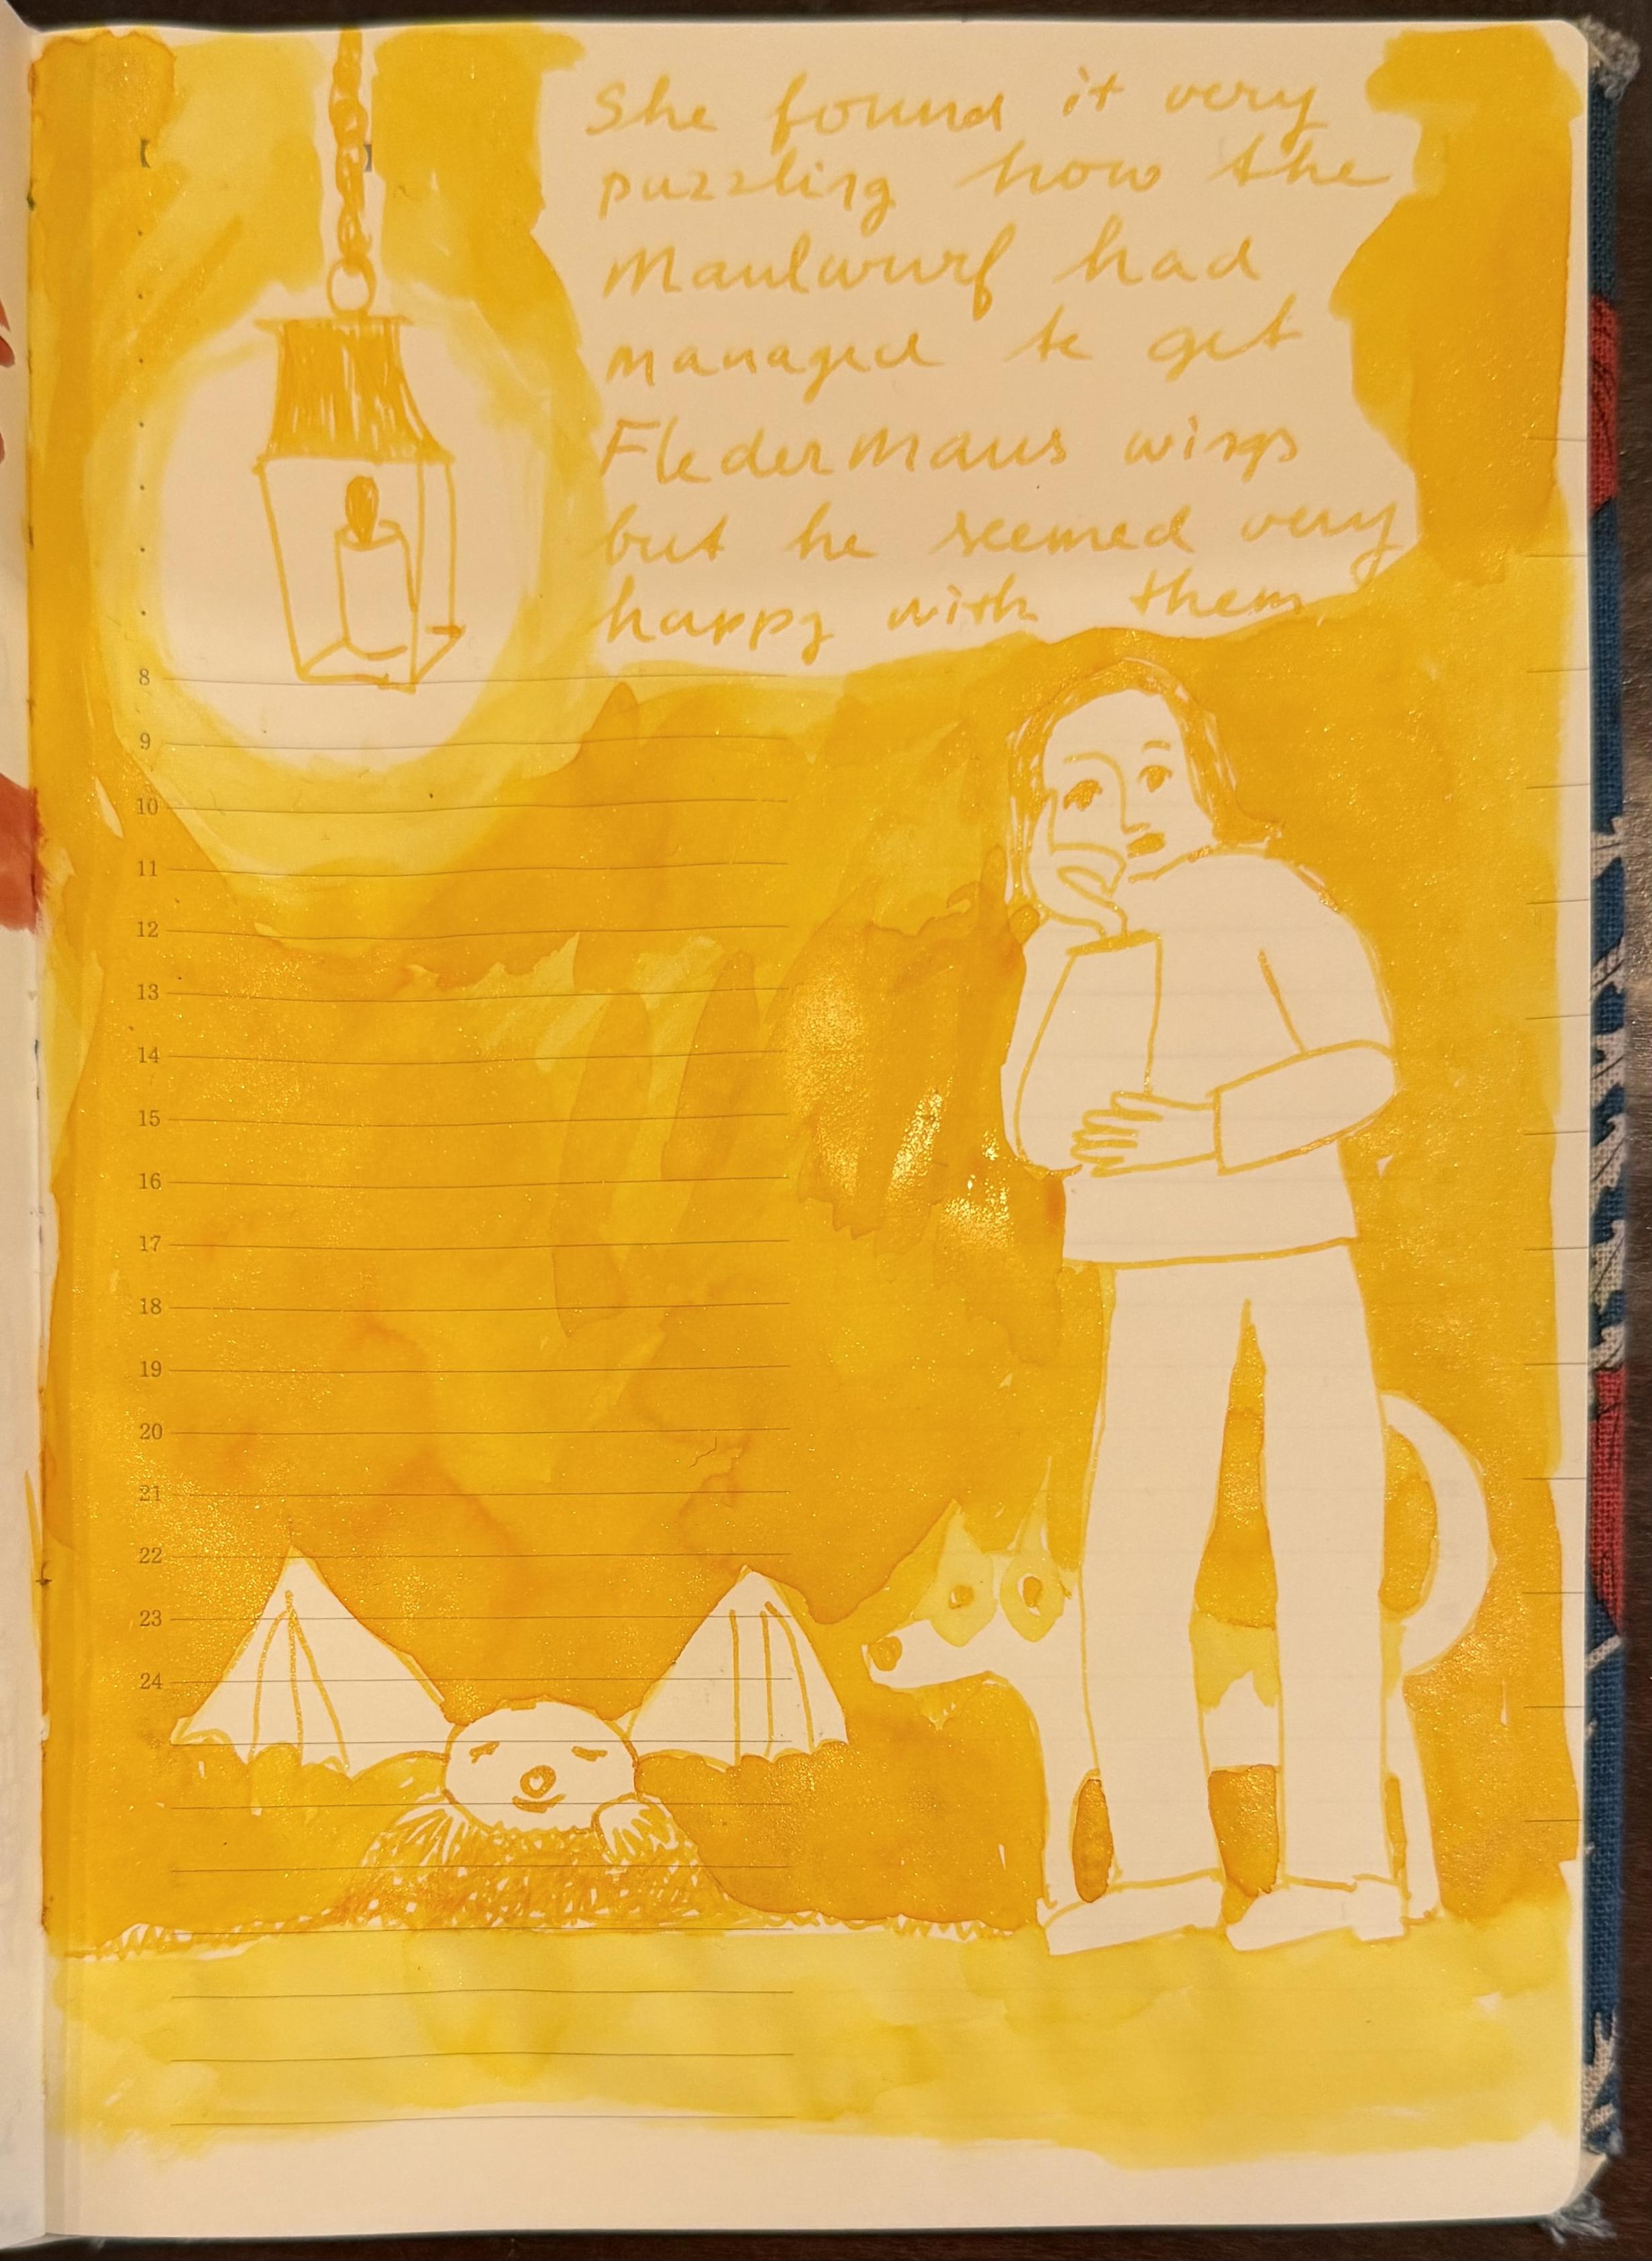 She found it very
puzzling how the
Maulwurf had
managed to get
Fledermaus wings
but he seemed very
happy with them
8
9
10
11
12
13
14
15
16
17
18
19
20
21
22
23
24